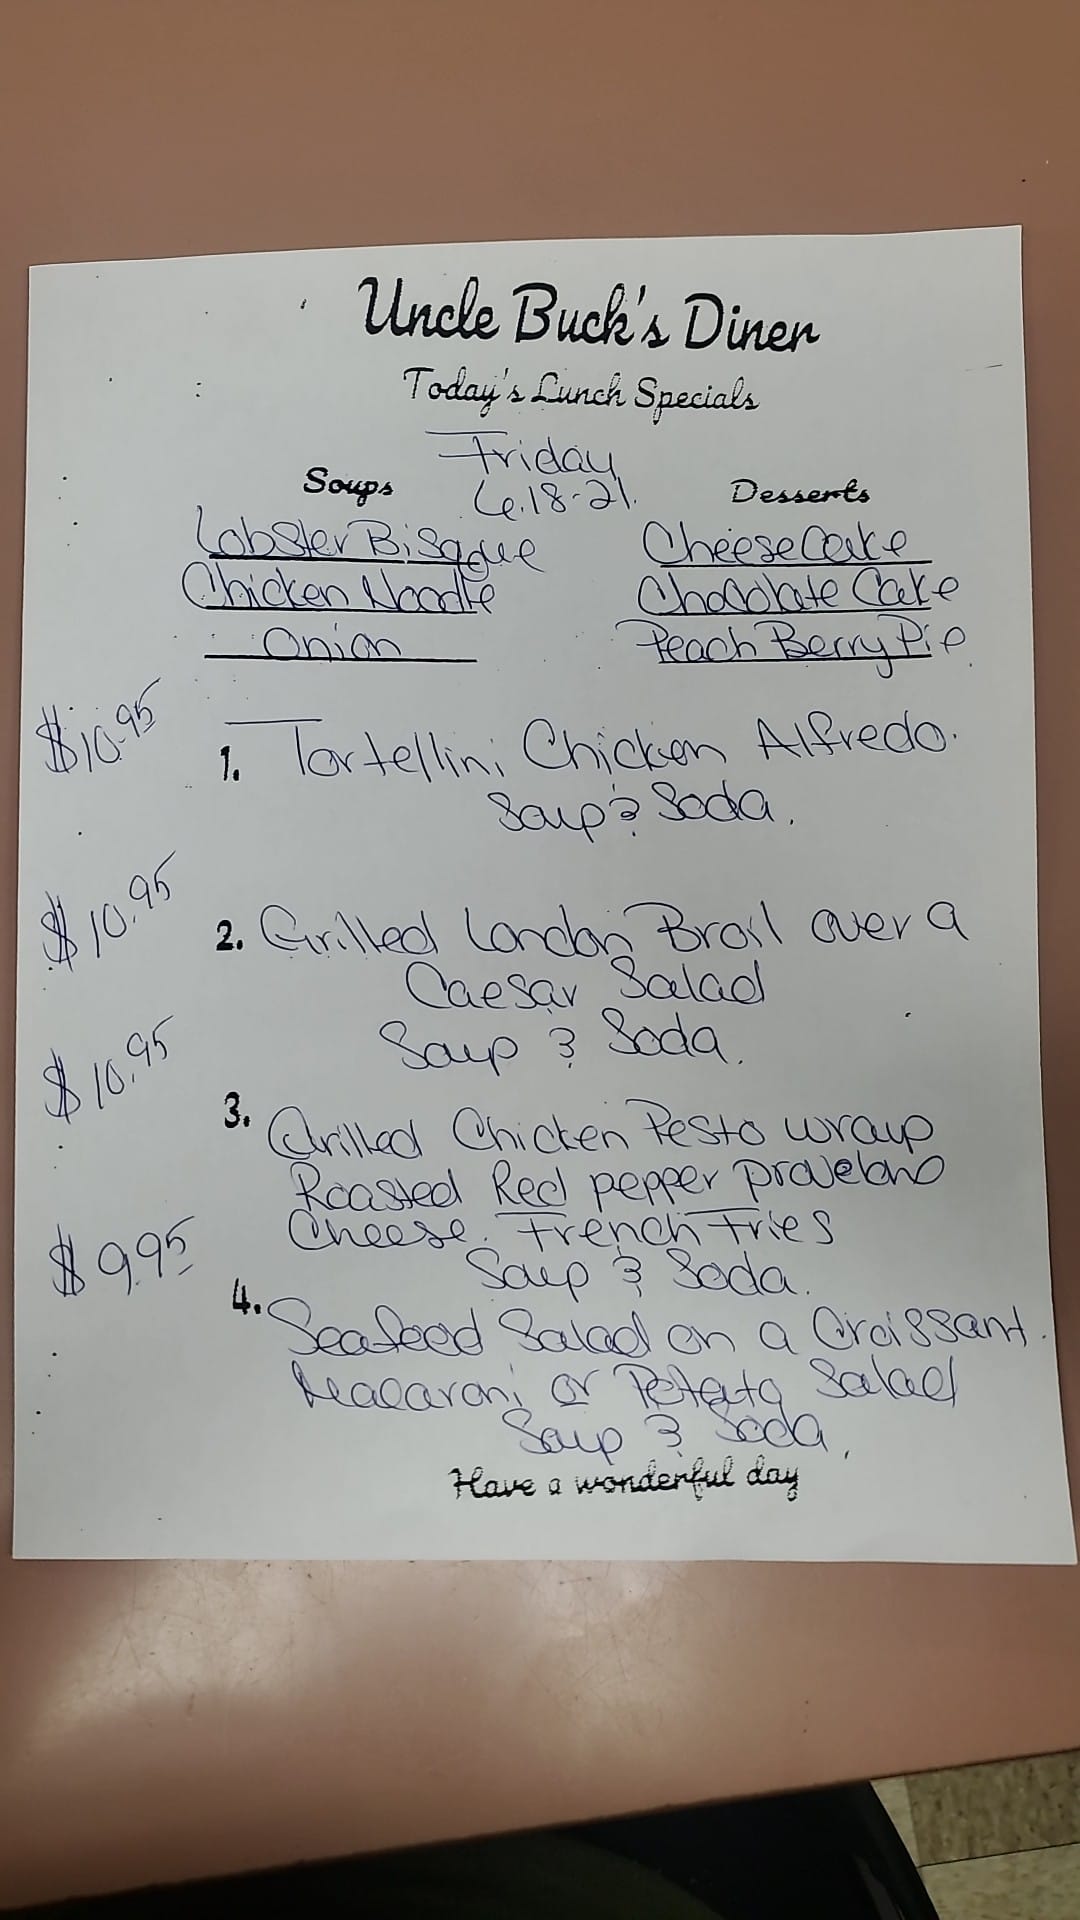 Uncle Buck's Diner
Today's Lunch Specials
Friday
6.18-21.
Soups
Lobster Bisque
Chicken Noodle
Onion
Desserts
Cheese Cake
Chocolate Cake
Peach Berry Pie
$10.95
1. Tortellini Chicken Alfredo.
Soup & Soda.
$10.95
2. Grilled London Broil over a
Caesar Salad
Soup & Soda.
$10.95
3. Grilled Chicken Pesto wrap
Roasted Red pepper provelono
Cheese. French Fries
Soup & Soda.
$9.95
4. Seafood Salad on a Croissant.
Macaroni or Potato Salad
Soup & Soda.
Have a wonderful day